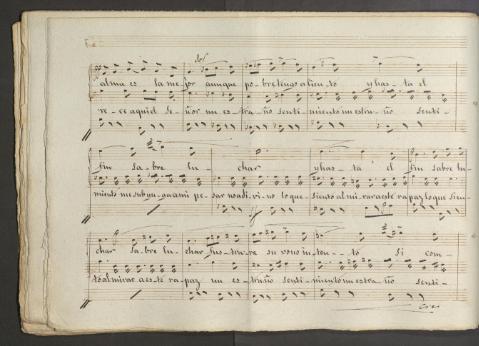 dol
alma es la mejor aunque pobre tengo aliento y has-ta el
re-re aquiel se-ñor un es-tra-ño senti-miento un estra-ño senti-
fin sa-bre lu-char y has-ta el fin sabre lu-
miento me subyuga a mi pe-sar no adi-vi-no lo que siento al mirar a este rapaz lo que sien-
char sa-bre lu-char su vono in-ten-to Si com-
to al mirar a es-te ra-paz un es-traño senti-miento un estra-ño senti-
Cres